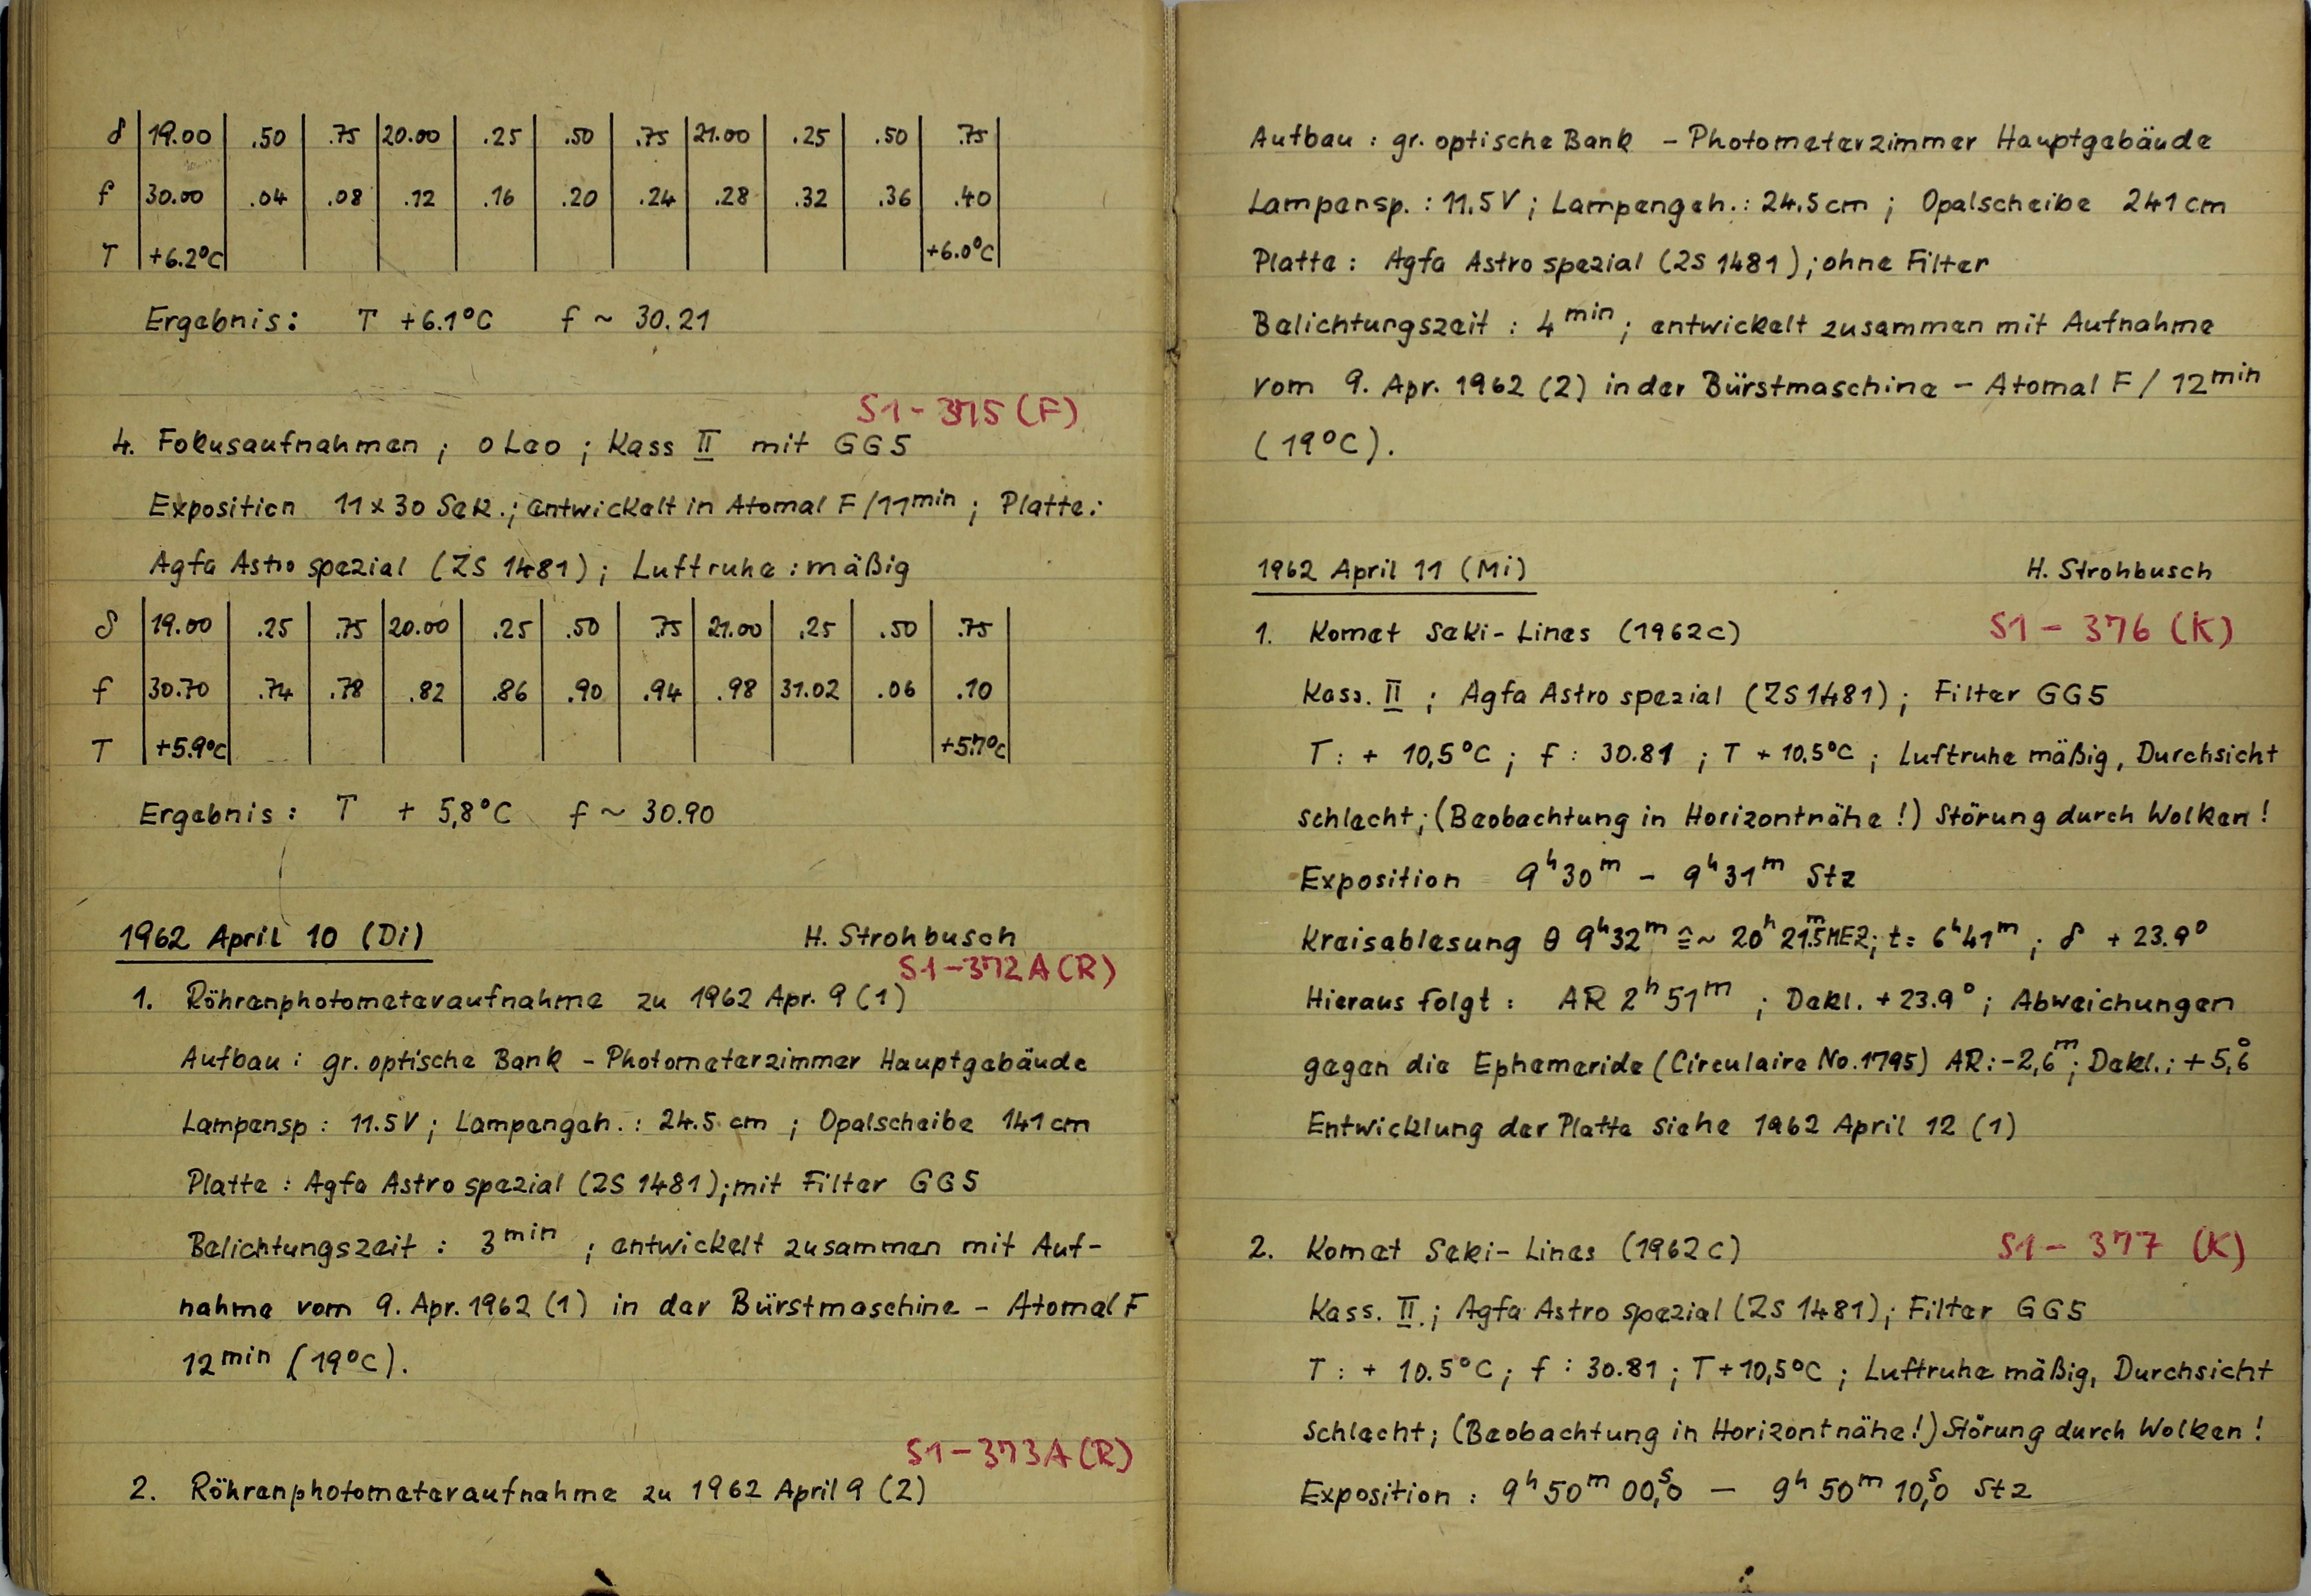 δ 19.00 .50 .75 20.00 .25 .50 .75 21.00 .25 .50 .75
f 30.00 .04 .08 .12 .16 .20 .24 .28 .32 .36 .40
T +6.2°C +6.0°C
Ergebnis: T +6.1°C f ~ 30.21
S1-375 (F)
4. Fokusaufnahmen ; o Leo ; Kass II mit GG5
Exposition 11 x 30 Sek.; entwickelt in Atomal F/11min ; Platte:
Agfa Astro spezial (ZS 1481); Luftruhe : mäßig
δ 19.00 .25 .75 20.00 .25 .50 .75 21.00 .25 .50 .75
f 30.70 .74 .78 .82 .86 .90 .94 .98 31.02 .06 .10
T +5.9°C +5.7°C
Ergebnis: T + 5,8°C f ~ 30.90
1962 April 10 (Di) H. Strohbusch
S1-372A(R)
1. Röhrenphotometeraufnahme zu 1962 Apr. 9 (1)
Aufbau: gr. optische Bank - Photometerzimmer Hauptgebäude
Lampensp : 11.5V ; Lampengeh. : 24.5 cm ; Opalscheibe 141 cm
Platte : Agfa Astro spezial (ZS 1481); mit Filter GG5
Belichtungszeit : 3min ; entwickelt zusammen mit Auf-
nahme vom 9. Apr. 1962 (1) in der Bürstmaschine - Atomal F
12min (19°C).
S1-373A(R)
2. Röhrenphotometeraufnahme zu 1962 April 9 (2)
Aufbau : gr. optische Bank - Photometerzimmer Hauptgebäude
Lampensp. : 11.5V ; Lampengeh. : 24.5cm ; Opalscheibe 241 cm
Platte : Agfa Astro spezial (ZS 1481); ohne Filter
Belichtungszeit : 4min ; entwickelt zusammen mit Aufnahme
vom 9. Apr. 1962 (2) in der Bürstmaschine - Atomal F / 12min
(19°C).
1962 April 11 (Mi) H. Strohbusch
1. Komet Seki-Lines (1962c) S1 - 376 (K)
Kass. II ; Agfa Astro spezial (ZS 1481); Filter GG5
T: + 10,5°C ; f : 30.81 ; T + 10.5°C ; Luftruhe mäßig, Durchsicht
schlecht; (Beobachtung in Horizontnähe!) Störung durch Wolken!
Exposition 9h30m - 9h31m Stz
Kreisablesung θ 9h32m ≙ ~ 20h21.m5 MEZ; t= 6h41m ; δ + 23.9°
Hieraus folgt : AR 2h51m ; Dekl. + 23.9° ; Abweichungen
gegen die Ephemeride (Circulaire No. 1795) AR: -2,m6 ; Dekl.: + 5,°6
Entwicklung der Platte siehe 1962 April 12 (1)
2. Komet Seki-Lines (1962c) S1 - 377 (K)
Kass. II.; Agfa Astro spezial (ZS 1481); Filter GG5
T : + 10.5°C ; f : 30.81 ; T + 10,5°C ; Luftruhe mäßig, Durchsicht
schlecht; (Beobachtung in Horizontnähe!) Störung durch Wolken!
Exposition : 9h50m 00,s0 — 9h50m 10,s0 Stz